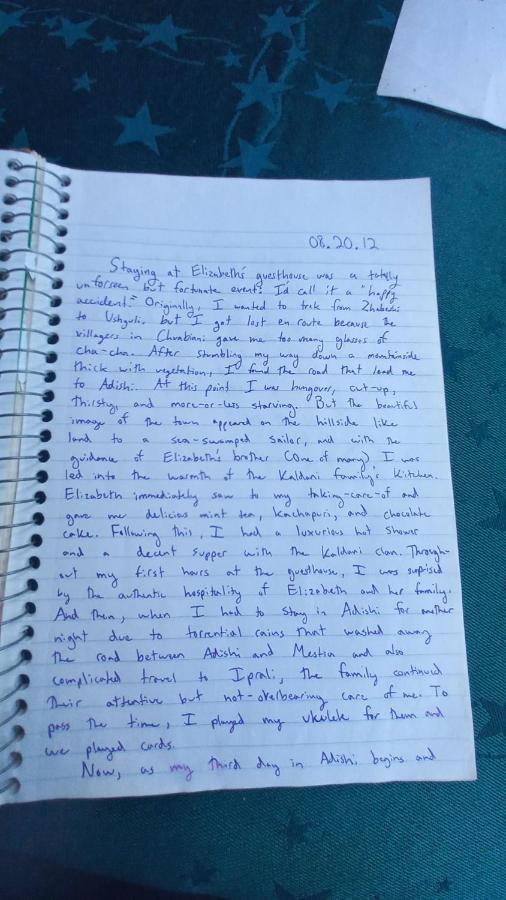 08.20.12
Staying at Elizabeth's guesthouse was a totally
unforseen but fortunate event. I'd call it a "happy
accident." Originally, I wanted to trek from Zhabeshi
to Ushguli, but I got lost en route because the
villagers in Chvabiani gave me too many glasses of
cha-cha. After stumbling my way down a mountainside
thick with vegetation, I found the road that lead me
to Adishi. At this point I was hungover, cut-up,
thirsty, and more-or-less starving. But the beautiful
image of the town appeared on the hillside like
land to a sea-swamped sailor, and with the
guidance of Elizabeth's brother (one of many) I was
led into the warmth of the Kaldani family's kitchen.
Elizabeth immediately saw to my taking-care-of and
gave me delicious mint tea, kachapuri, and chocolate
cake. Following this, I had a luxurious hot shower
and a decent supper with the Kaldani clan. Through-
out my first hours at the guesthouse, I was suprised
by the authentic hospitality of Elizabeth and her family.
And then, when I had to stay in Adishi for another
night due to torrential rains that washed away
the road between Adishi and Mestia and also
complicated travel to Iprali, the family continued
their attentive but not-overbearing care of me. To
pass the time, I played my ukulele for them and
we played cards.
Now, as my third day in Adishi begins and